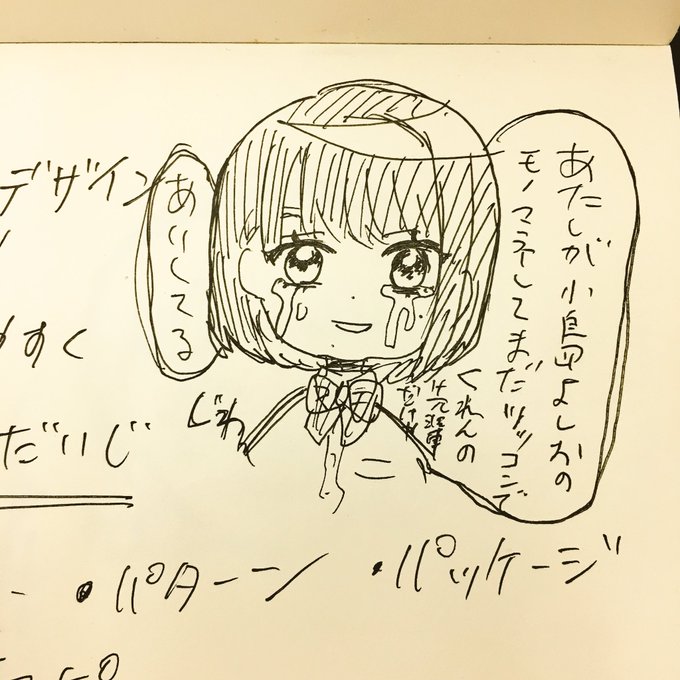 デザイン
やすく
だいじ
あいしてる
あたしが小島よしおの
モノマネしてまだツッコンで
くれんの
だけ
じわ
・パターン ・パッケージ